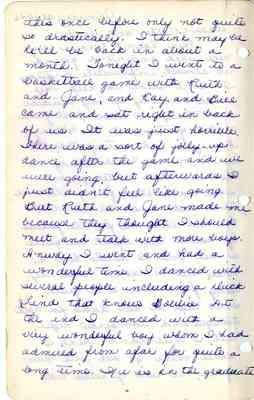 this once before only not quite
so drastically. I think maybe
he'll be back in about a
month. Tonight I went to a
basketball game with Ruth
and Jane, and Kay and Bill
came and sat right in back
of us. It was just horrible.
There was a sort of jolly-up
dance after the game and we
were going, but afterwards I
just didn't feel like going.
But Ruth and Jane made me
because they thought I should
meet and talk with more boys.
Anyway I went and had a
wonderful time. I danced with
several people including a
that knows At
the end I danced with a
very wonderful boy whom I had
admired from afar for quite a
long time. He is in the graduate